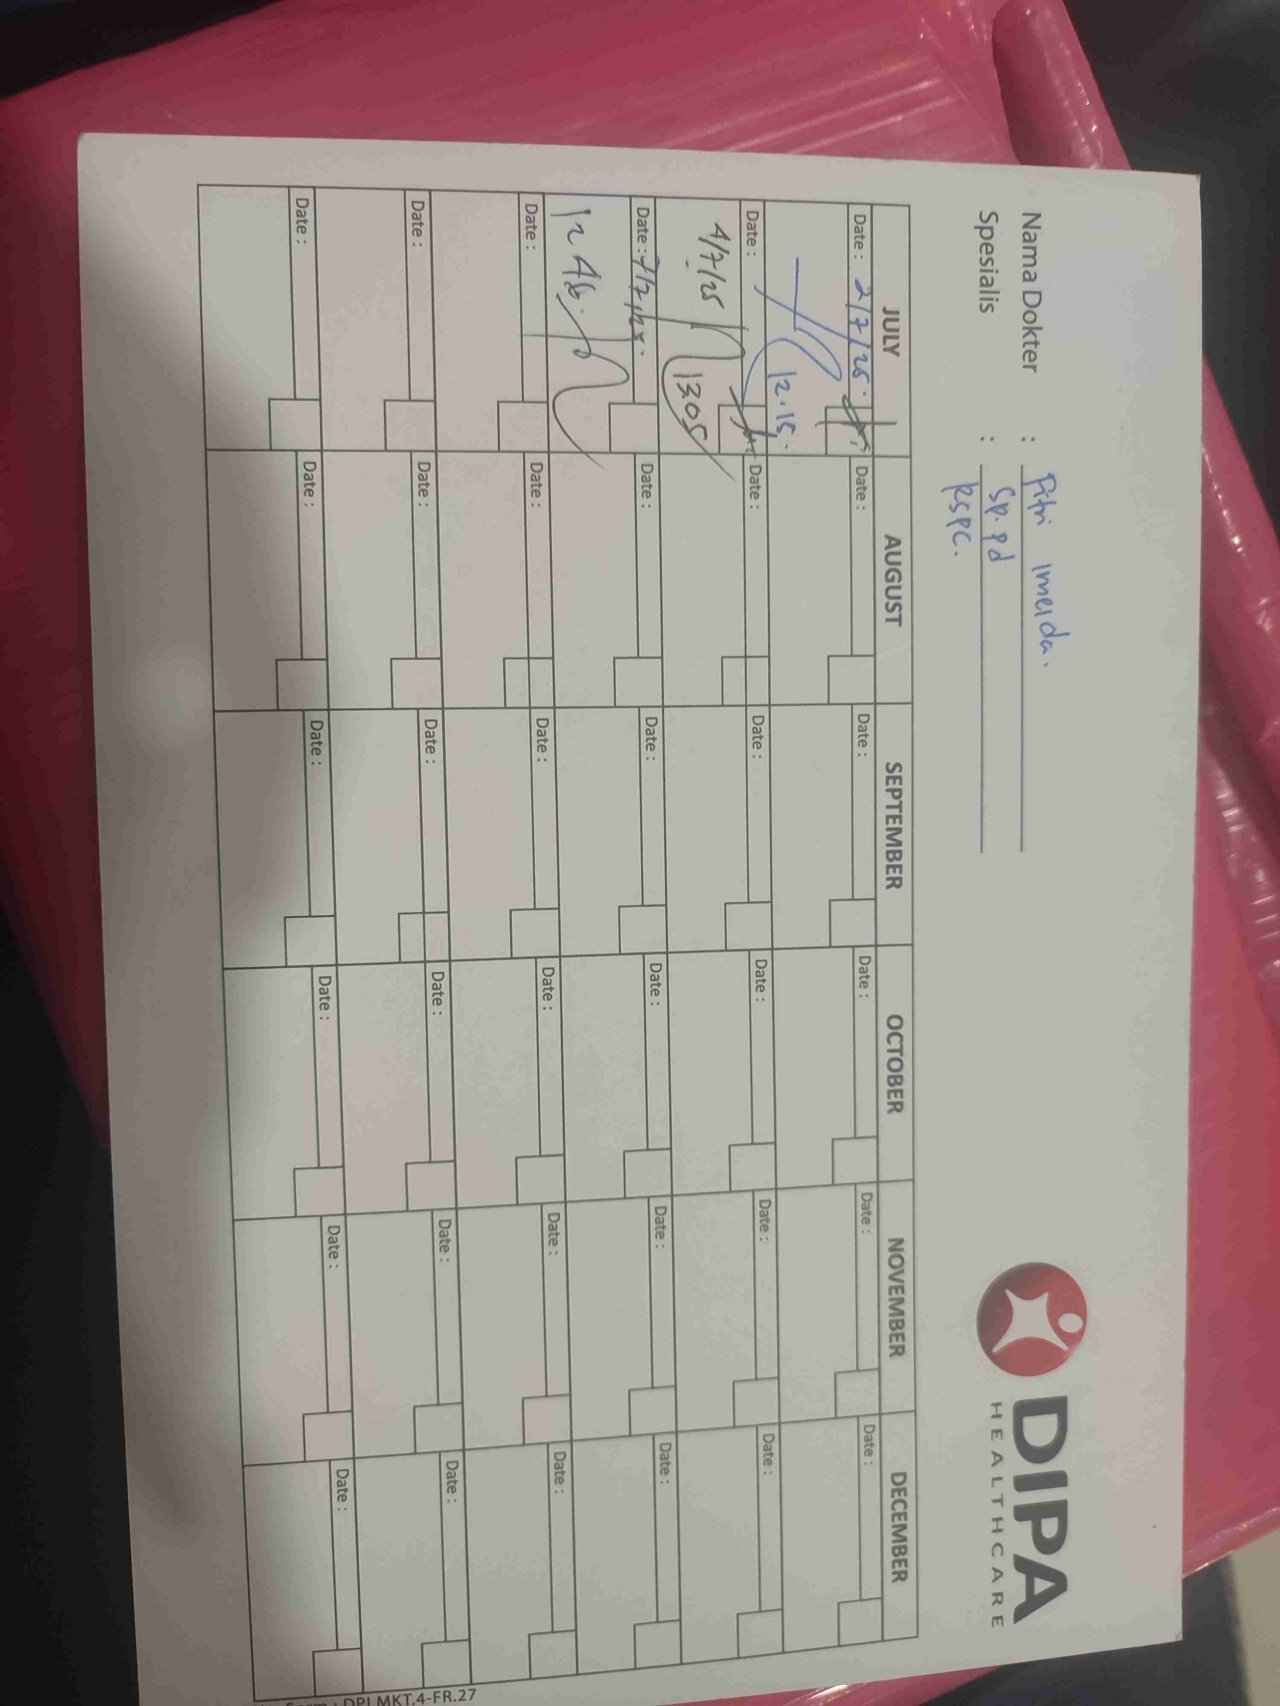 Nama Dokter : Fitri Imelda.
Spesialis : Sp. pd
RSPC.
DIPA
HEALTHCARE
JULY AUGUST SEPTEMBER OCTOBER NOVEMBER DECEMBER
Date : 2/7/25. Date : Date : Date : Date : Date :
12.15.
Date : Date : Date : Date : Date : Date :
4/7/25
1305
Date : 7/7/25. Date : Date : Date : Date : Date :
12 46.
Date : Date : Date : Date : Date : Date :
Date : Date : Date : Date : Date : Date :
Date : Date : Date : Date : Date : Date :
: DPI.MKT.4-FR.27